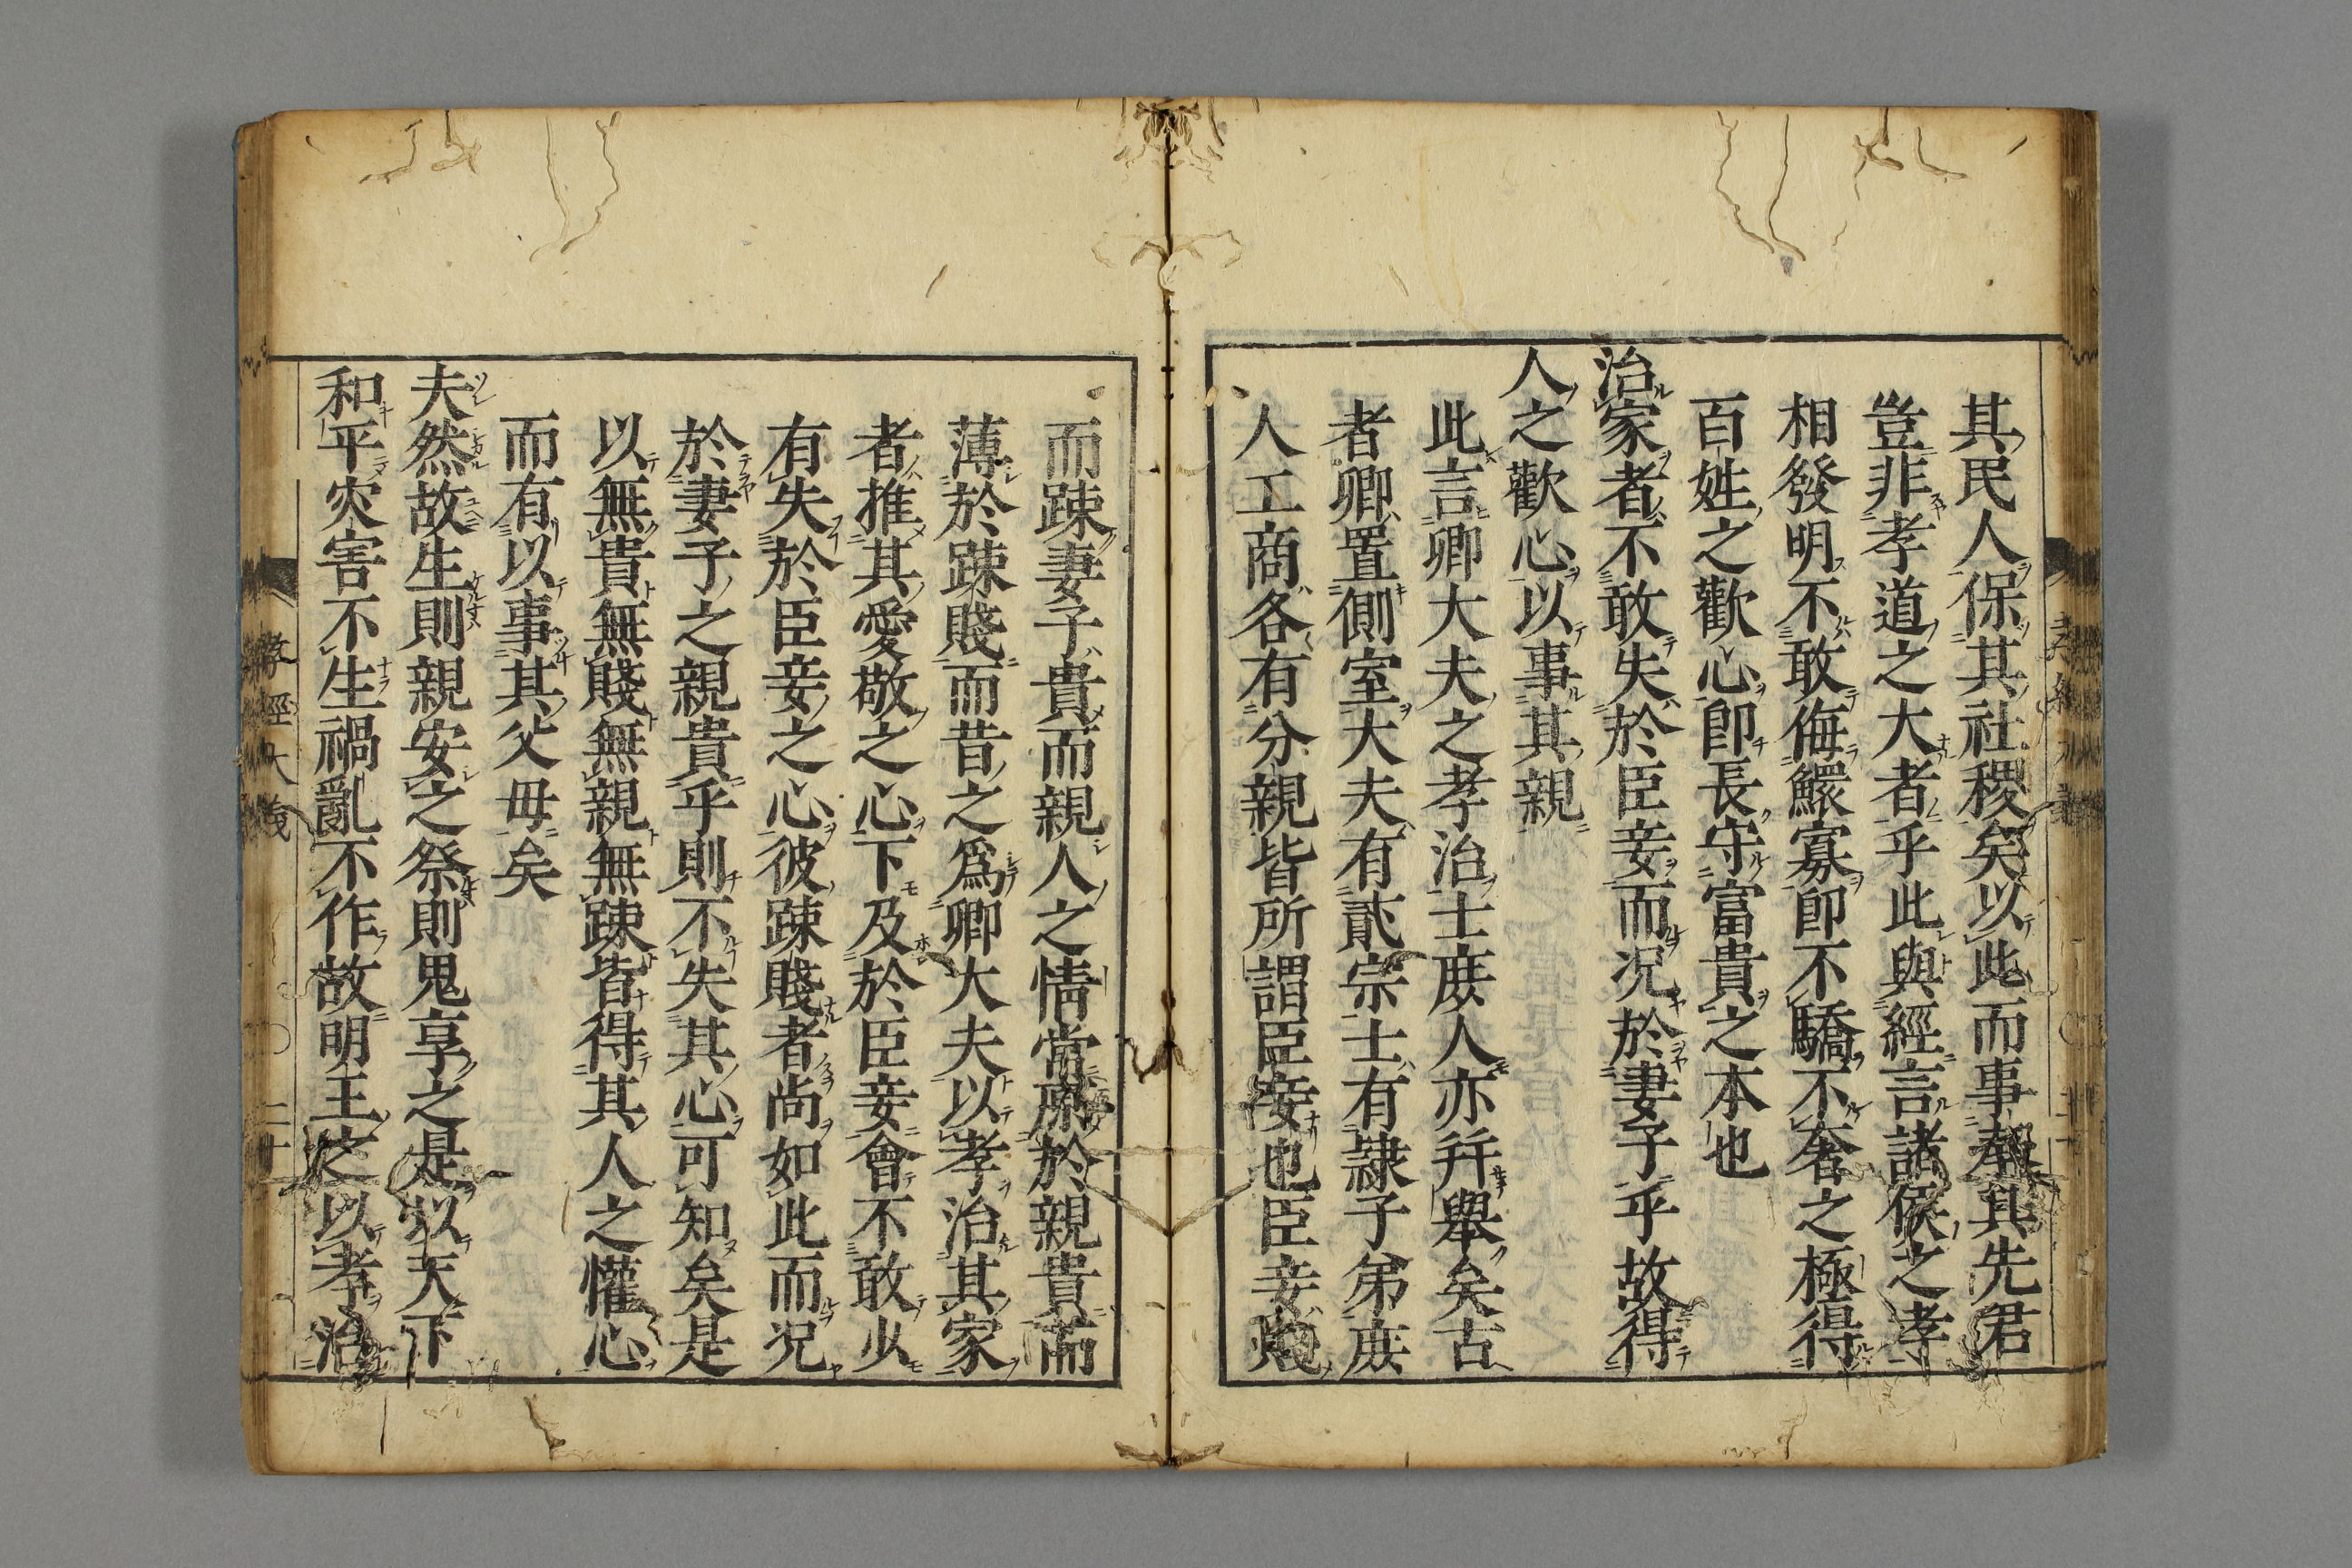 其民人保其社稷矣以此而事其先君
豈非孝道之大者乎此與經言諸侯之孝
相發明不敢侮鰥寡卽不驕不奢之極得
百姓之歡心卽長守富貴之本也
治家者不敢失於臣妾而况於妻子乎故得
人之歡心以事其親
此言卿大夫之孝治士庶人亦幷舉矣古
者卿置側室大夫有貳宗士有隷子弟庶
人工商各有分親皆所謂臣妾也臣妾賤
而踈妻子貴而親人之情常於親貴而
薄於踈賤而昔之爲卿大夫以孝治其家
者推其愛敬之心下及於臣妾會不敢少
有失於臣妾之心彼踈賤者尚如此而况
於妻子之親貴乎則不失其心可知矣是
以無貴無賤無親無踈皆得其人之懽心
而有以事其父母矣
夫然故生則親安之祭則鬼享之是以天下
和平灾害不生禍亂不作故明王之以孝治
孝經大義
二十